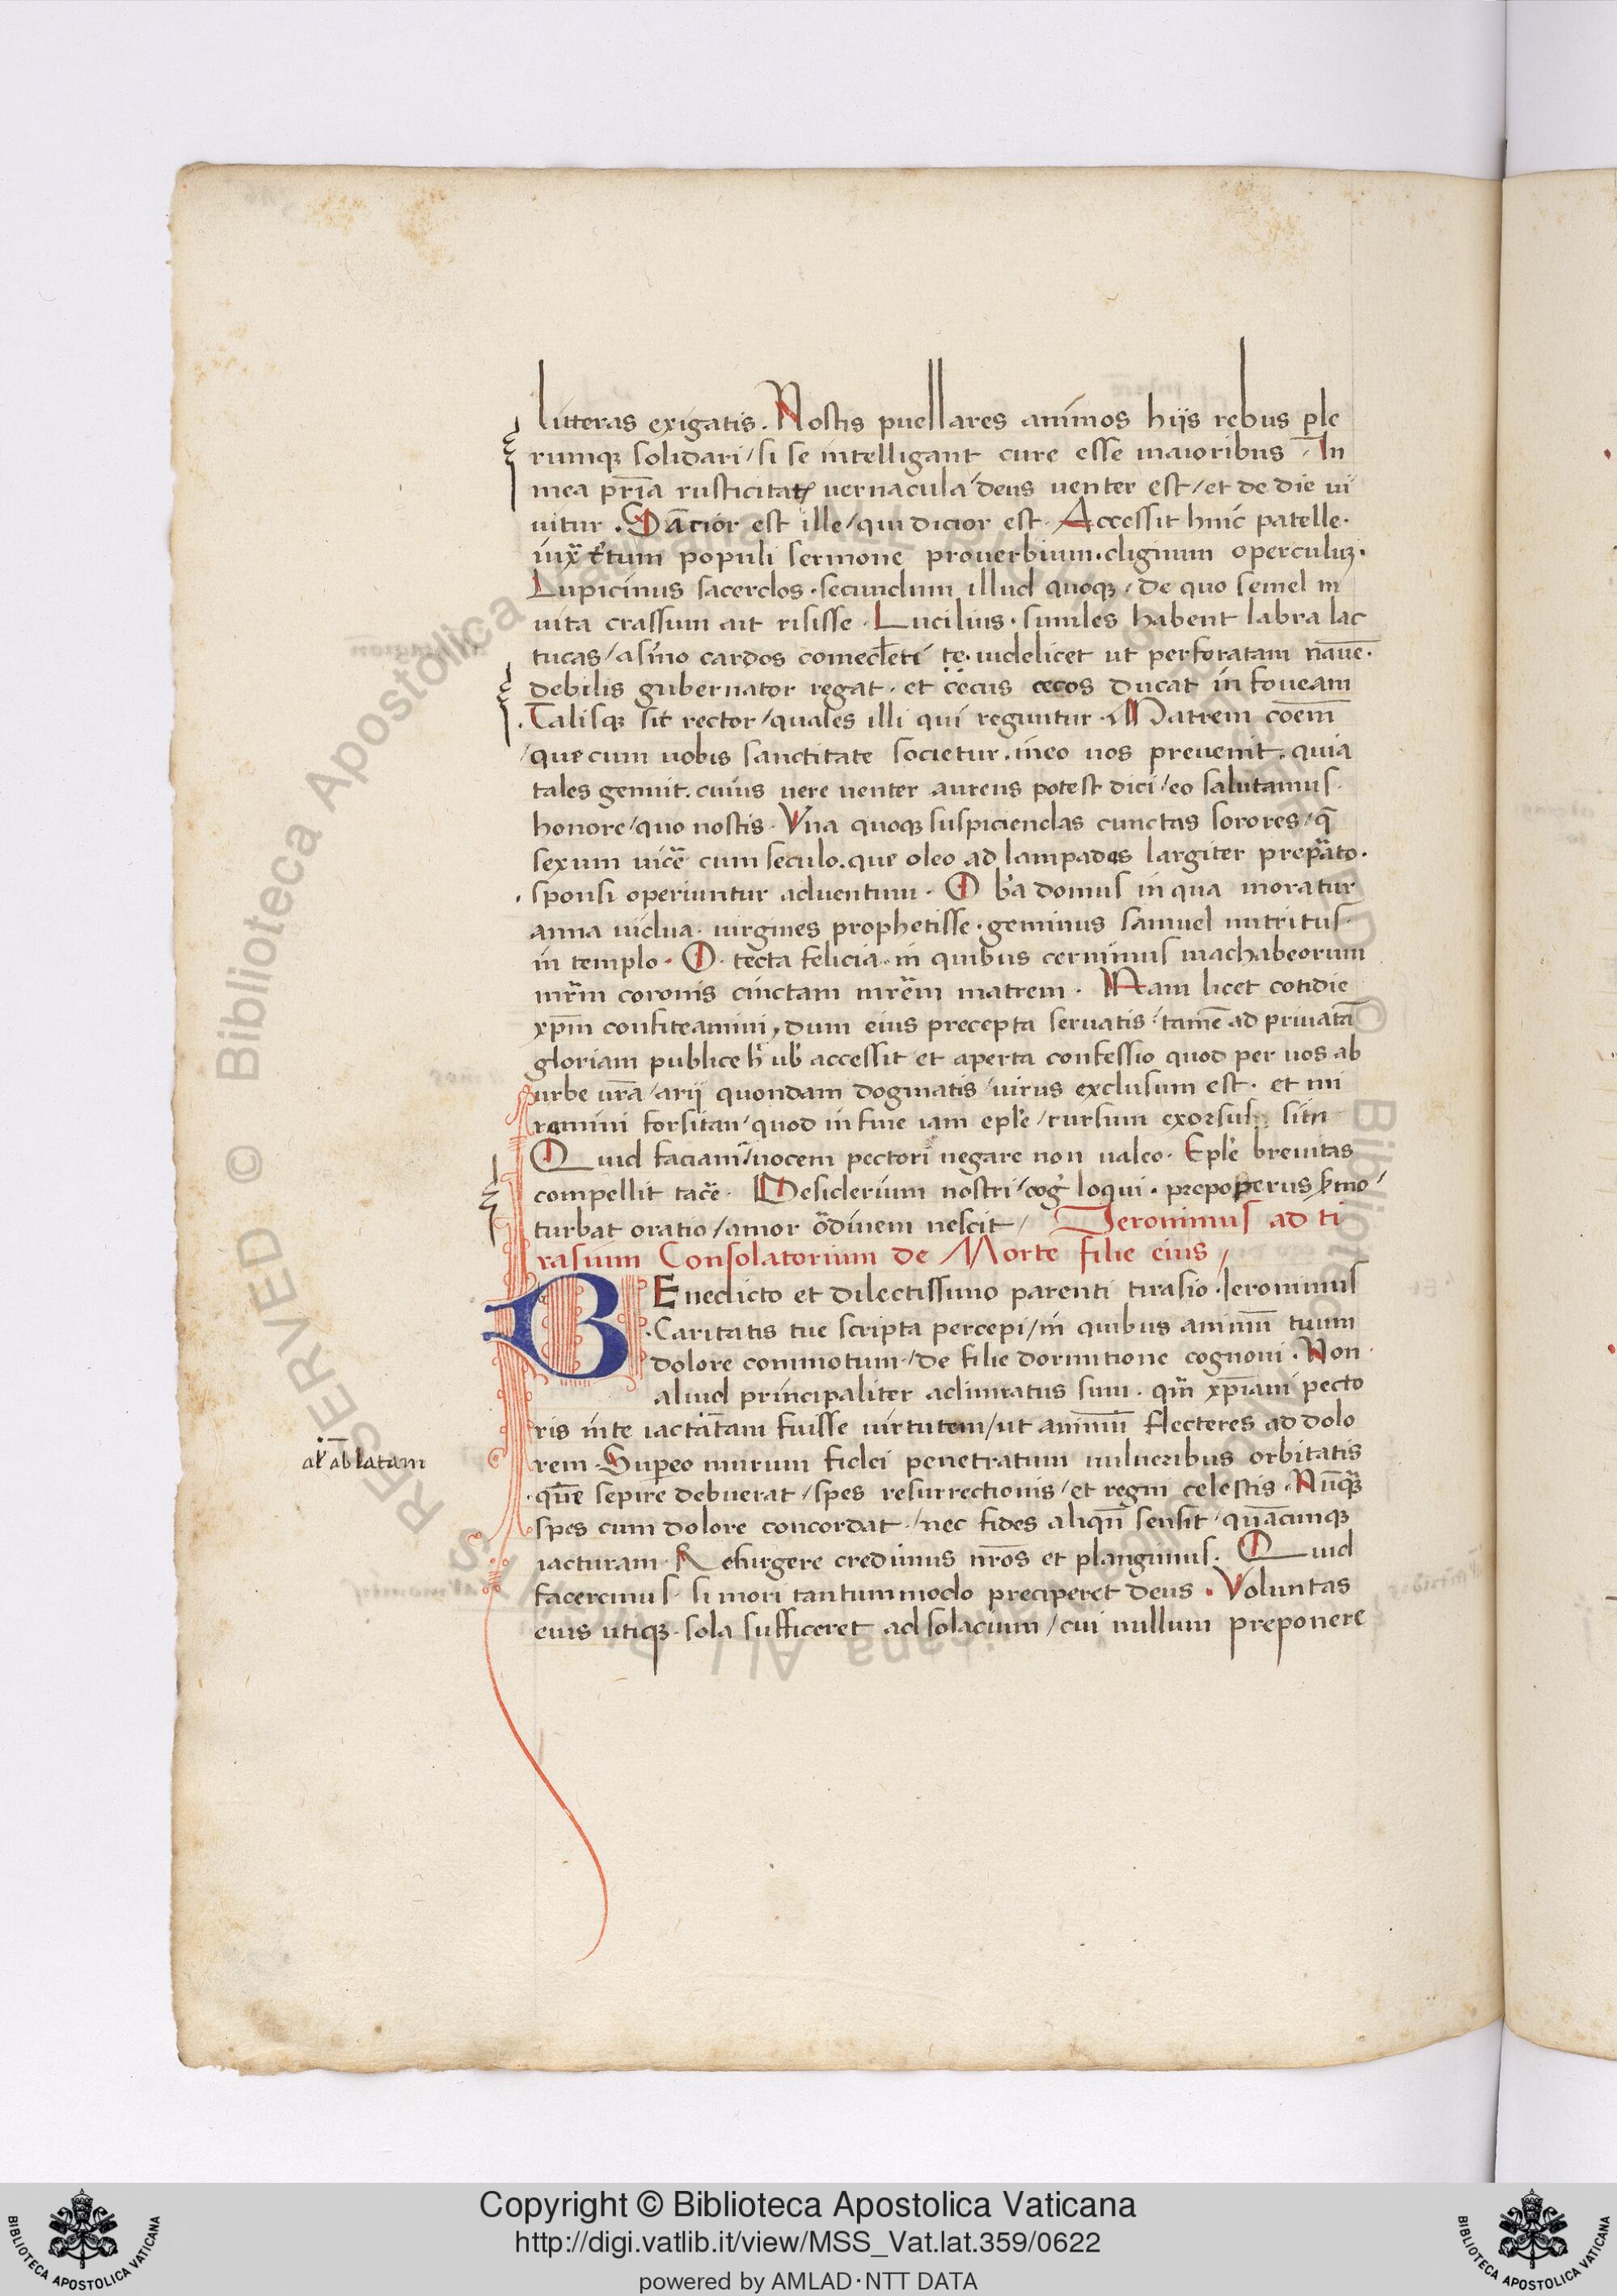 litteras exigatis. Nostis puellares animos hijs rebus ple
rumqꝫ solidari / si se intelligant cure esse maioribus. In
mea pr̄ia rusticitatꝭ uernacula deus uenter est / et de die ui
uitur. Sāctior est ille / qui dicior est. Accessit huic patelle.
iux̄ t̄tum populi sermone prouerbium. dignum operculuꝫ.
Lupicinus sacerdos. secundum illud quoqꝫ. de quo semel in
uita crassum ait risisse. Lucilius. similes habent labra lac
tucas / asino cardos comedēti te. uidelicet ut perforatam nauē.
debilis gubernator regat. et cecus cecos ducat in foueam
Talisqꝫ sit rector / quales illi qui reguntur. Matrem cōem̄
/ que cum uobis sanctitate societur. in eo uos preuenit. quia
tales genuit. cuius uere uenter aureus potest dici / eo salutamus.
honore / quo nostis. Vna quoqꝫ suspiciendas cunctas sorores / q̄
sexum uic̄e cum seculo. que oleo ad lampades largiter prep̄ato.
sponsi operiuntur aduentum. O b̄a domus in qua moratur
anna uidua. uirgines prophetisse. geminus samuel nutritus.
in templo. O. tecta felicia. in quibus cernimus machabeorum
mr̄m coronis cinctam mr̄em matrem. Nam licet cotidie
xp̄m confiteamini, dum eius precepta seruatis. tamē ad priuatā
gloriam publice h̄ ub̄ accessit et aperta confessio quod per uos ab
urbe ur̄a / arij quondam dogmatis / uirus exclusum est. et mi
ramini forsitan / quod in fine iam ep̄le / rursum exorsus sim
Quid faciam? / uocem pectori negare non ualeo. Ep̄le breuitas
compellit tac̄e. Desiderium nostri / coḡ loqui. prepoperus s̄mo /
turbat oratio / amor ōdinem nescit / Ieronimus ad ti
rasium Consolatorium de Morte filie eius /
BEnedicto et dilectissimo parenti tirasio. Ieronimus
Caritatis tue scripta percepi / in quibus animū tuum
dolore commotum / de filie dormitione cognoui. Non
aliud principaliter admiratus sum. qm̄ xp̄iani pecto
ris in te iactātam fuisse uirtutem / ut animū flecteres ad dolo
al' ablatam
rem. Stupeo murum fidei penetratum uulneribus orbitatis
quē sepire debuerat / spes resurrectionis / et regni celestis. Nūq̄
spes cum dolore concordat. / nec fides aliqn̄ sensit / quācunqꝫ
iacturam. Resurgere credimus nr̄os et plangimus. Quid
faceremus. si mori tantummodo preciperet deus. Voluntas
euis utiqꝫ. sola sufficeret ad solacium / cui nullum preponere
Copyright © Biblioteca Apostolica Vaticana
http://digi.vatlib.it/view/MSS_Vat.lat.359/0622
powered by AMLAD·NTT DATA